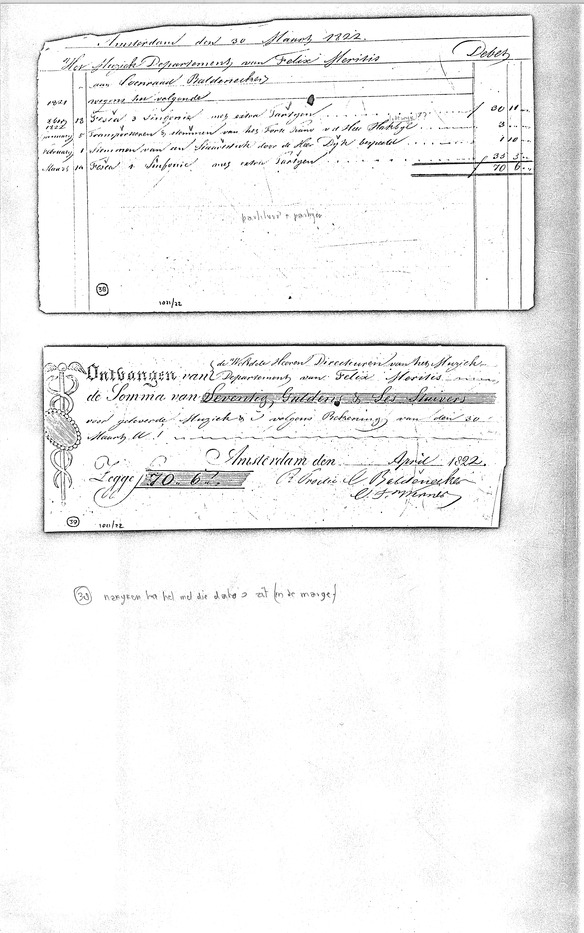 Amsterdam den 30 Maart 1822.
Het Muziek Departement van Felix Meritis Debet
aan Coenraad Baldenecker
1821 wegens het volgende
18 Fesca 3 Sinfonie met extra Partyen 30 11
1822
January 5 Transporteeren & stemmen van het Forte Piano 3
February 1 stemmen van door de Heer Dyk betaald 1 10
Maart 14 Fesca 1 Sinfonie met extra Partyen 35 5
70 6
partituur + partijen
38
1021/22
Ontvangen van de WelEdele Heeren Directeuren van het Muziek
Departement van Felix Meritis
de Somma van Seventig Guldens & Ses Stuivers
voor geleverde Muziek & volgens Rekening van den 30
Maart
Amsterdam den April 1822.
Zegge 70 6 P. Procura C. Baldenecker
39
1021/22
38 nakijken hoe het met die data's zit (in de marge)